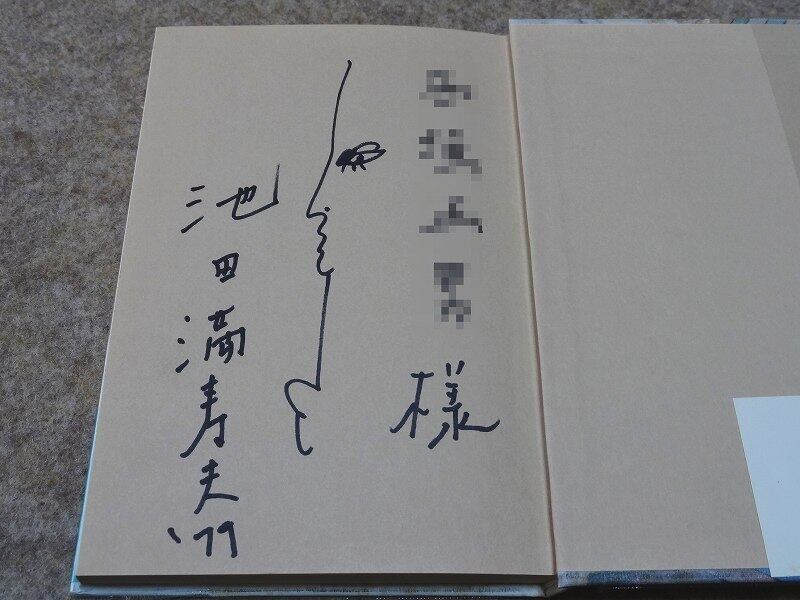 様
池田満寿夫
'79